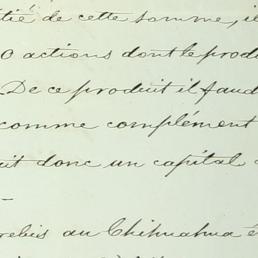 tié de cette somme, il
0 actions dont le produ
De ce produit il faud
comme complément
it donc un capital
au Chihuahua é